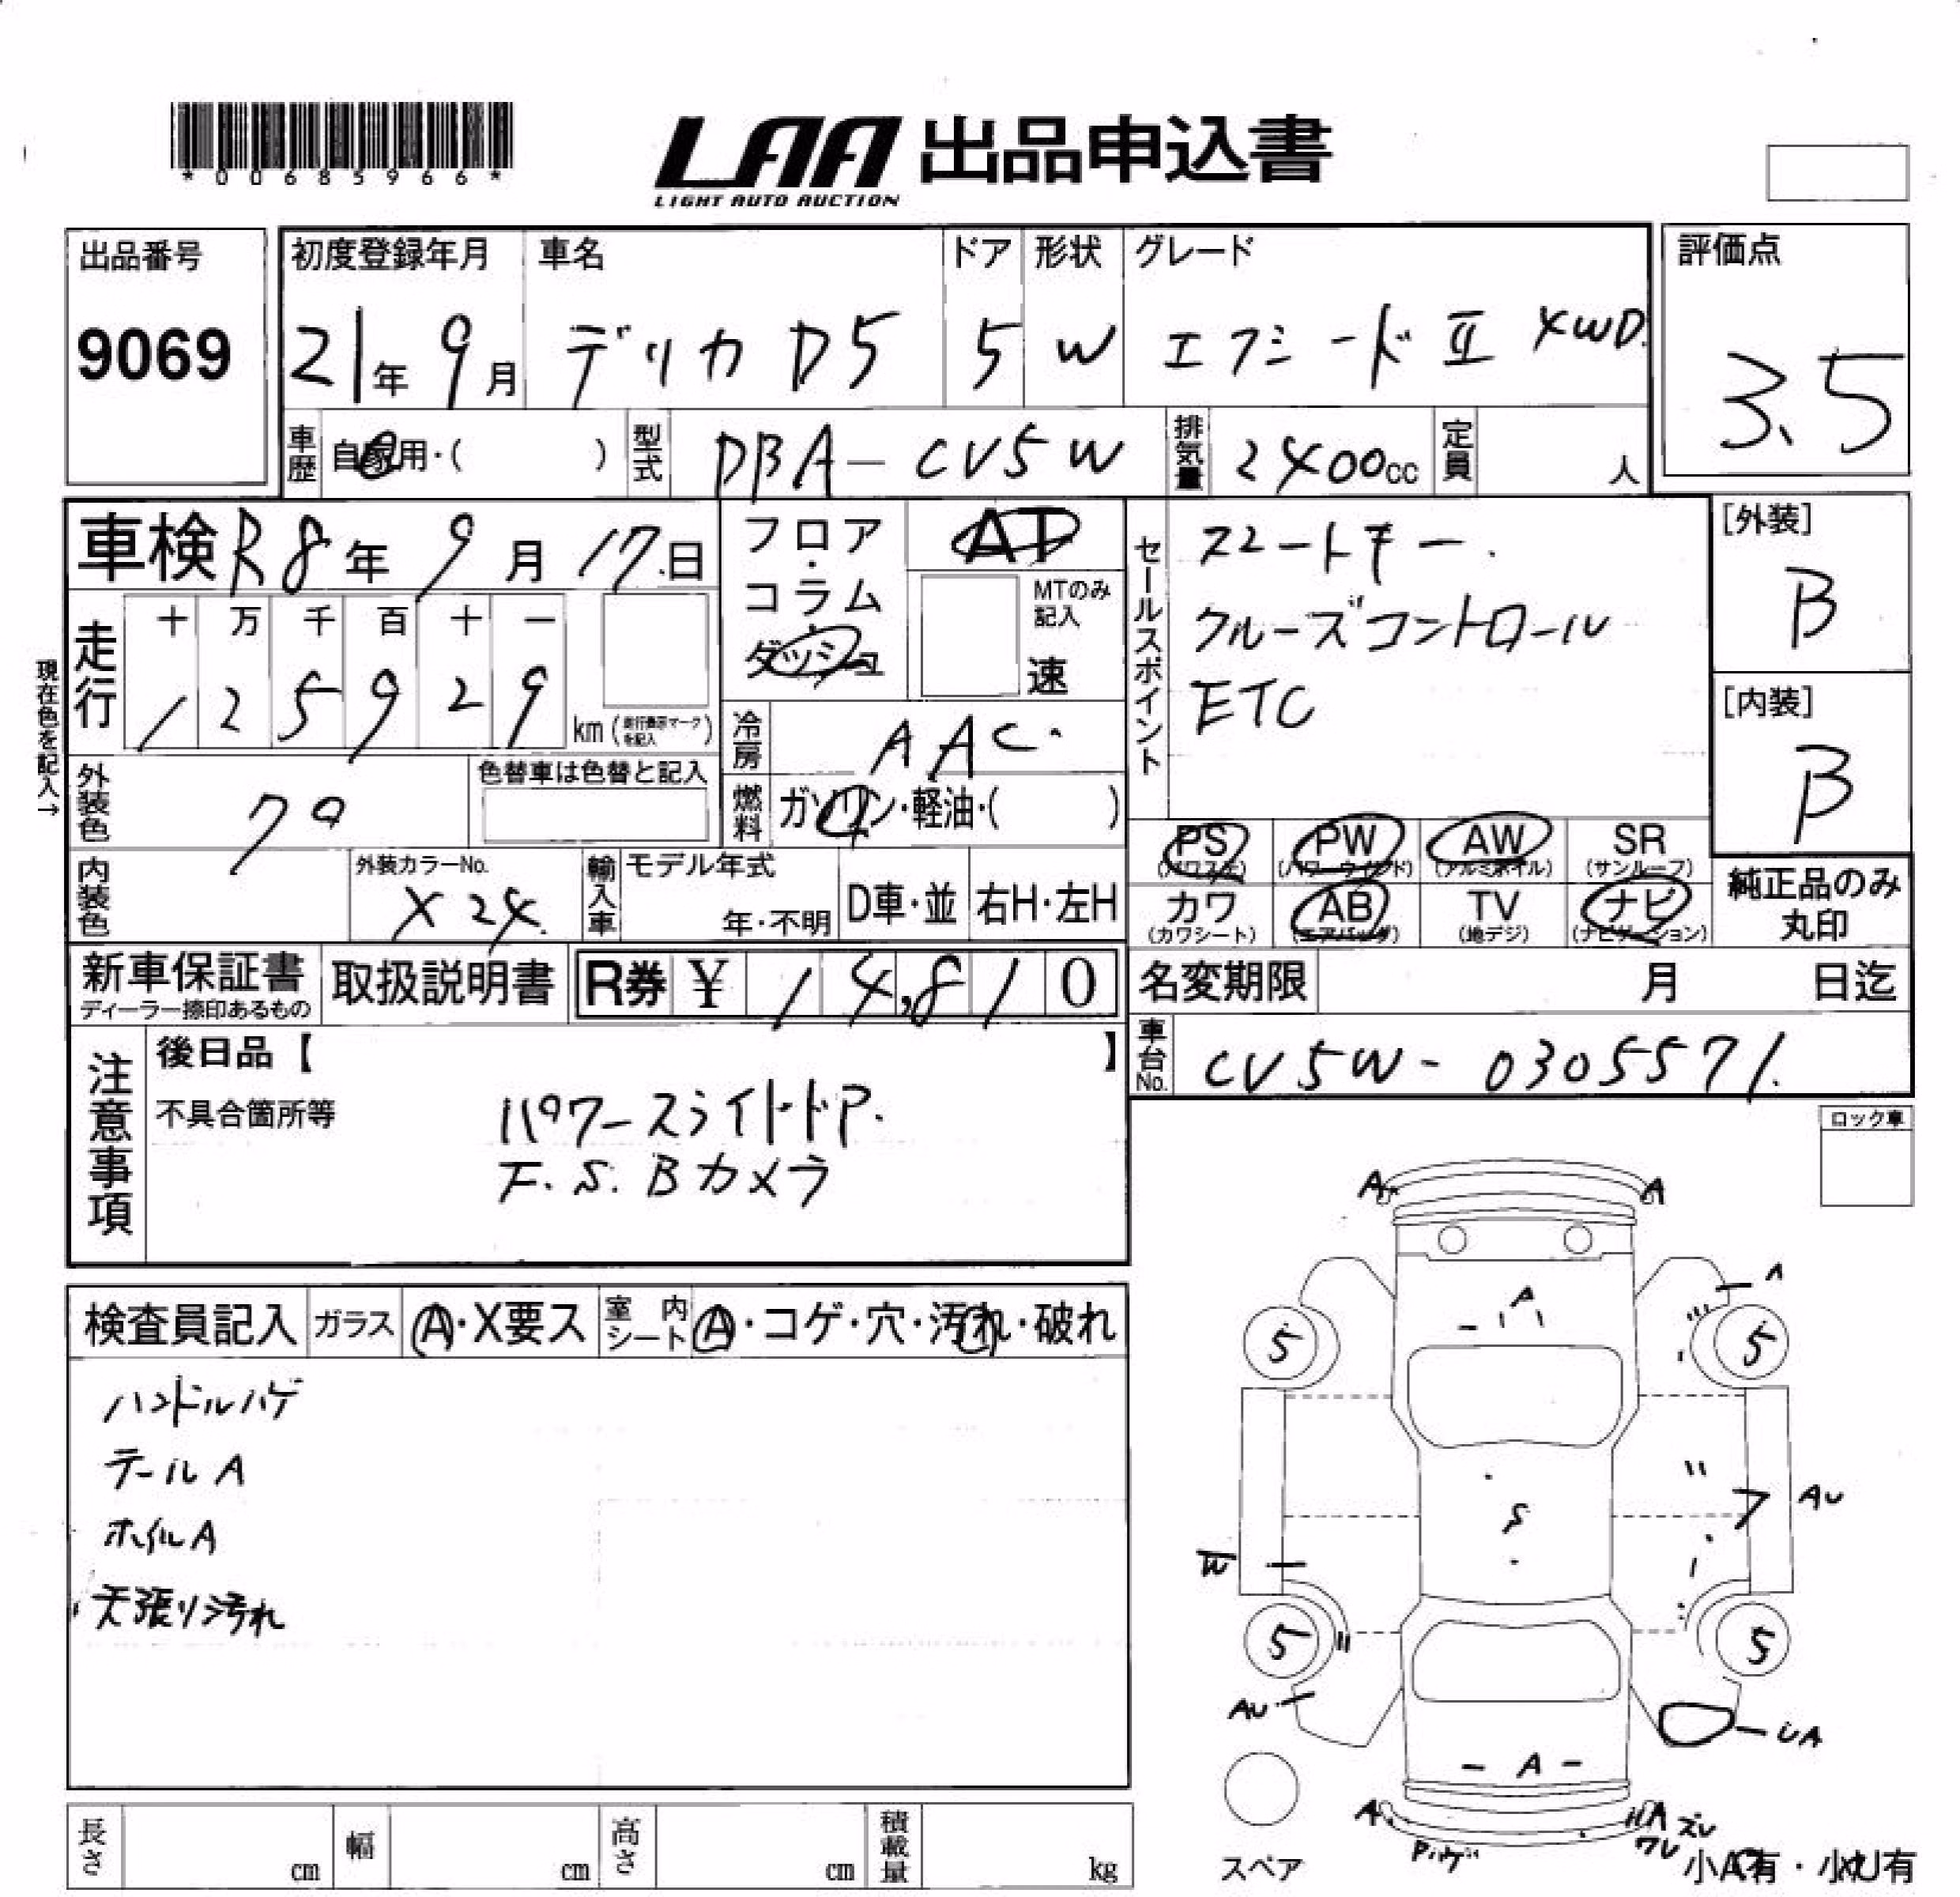 *00685966*
LAA 出品申込書
LIGHT AUTO AUCTION
出品番号
9069
初度登録年月
21年 9月
車名
デリカ D5
ドア
5
形状
W
グレード
エクシード Ⅱ 4WD.
評価点
3.5
車歴 自家用・( )
型式 DBA-CV5W
排気量 2400cc
定員 人
車検 R8年 9月 17日
フロア・コラム・ダッシュ
AT
MTのみ記入
速
現在色を記入→
走行
十 万 千 百 十 一
1 2 5 9 2 9
km(走行表示マークを記入)
冷房 AAC.
燃料 ガソリン・軽油・( )
外装色 クロ
色替車は色替と記入
内装色
外装カラーNo.
X24
輸入車
モデル年式
年・不明
D車・並
右H・左H
セールスポイント
スマートキー.
クルーズコントロール
ETC
[外装]
B
[内装]
B
PS (パワステ)
PW (パワーウインド)
AW (アルミホイル)
SR (サンルーフ)
カワ (カワシート)
AB (エアバッグ)
TV (地デジ)
ナビ (ナビゲーション)
純正品のみ
丸印
新車保証書
ディーラー捺印あるもの
取扱説明書
R券 ¥ 14,810
名変期限 月 日迄
車台No. CV5W-0305571.
注意事項
後日品【 】
不具合箇所等
パワースライドドア.
F.S.Bカメラ
ロック車
検査員記入
ガラス A・X要ス
室内シート A・コゲ・穴・汚れ・破れ
ハンドルハゲ
テールA
ホイルA
天張り汚れ
A A
A
A
5 5
AU
S
フ
W
5 5
AU
UA
A
A
Pハゲ
A ズレ
ワレ
スペア
小A有・小U有
長さ cm
幅 cm
高さ cm
積載量 kg